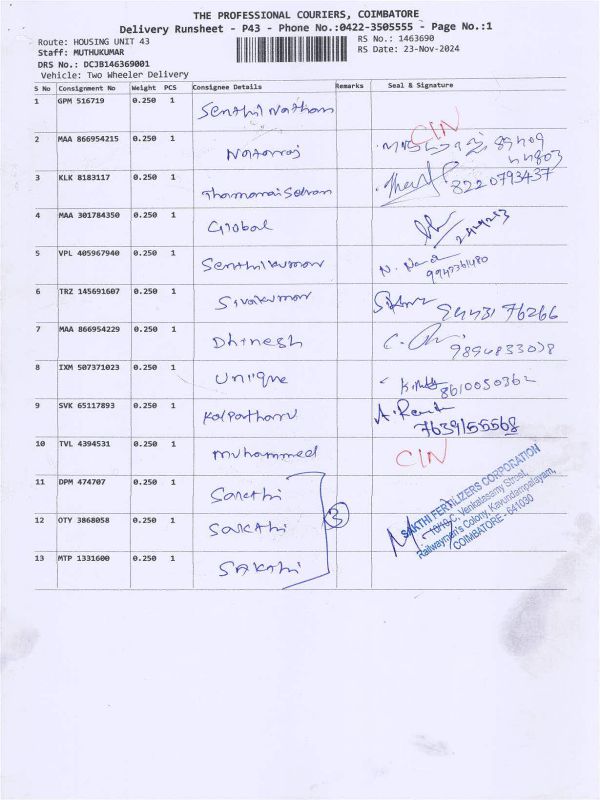 THE PROFESSIONAL COURIERS, COIMBATORE
Delivery Runsheet - P43 - Phone No.:0422-3505555 - Page No.:1
Route: HOUSING UNIT 43
RS No.: 1463690
Staff: MUTHUKUMAR
RS Date: 23-Nov-2024
DRS No.: DCJB146369001
Vehicle: Two Wheeler Delivery
S No Consignment No Weight PCS Consignee Details Remarks Seal & Signature
1 GPM 516719 0.250 1 Senthil Nathan
CIN
2 MAA 866954215 0.250 1 Nataraj 89409
44803
3 KLK 8183117 0.250 1 Thamarai Selvan 8220793437
4 MAA 301784350 0.250 1 Global
5 VPL 405967940 0.250 1 Senthilkumar
6 TRZ 145691607 0.250 1 Sivakumar 94431 76266
7 MAA 866954229 0.250 1 Dhinesh 9894833078
8 IXM 507371023 0.250 1 Unique 8610050362
9 SVK 65117893 0.250 1 7639155568
10 TVL 4394531 0.250 1 Muhammed CIN
11 DPM 474707 0.250 1 Sakthi
12 OTY 3868058 0.250 1 Sakthi 3
13 MTP 1331600 0.250 1 Sakthi
SAKTHI FERTILIZERS CORPORATION
Venkatasamy Street,
Railwayman's Colony, Kavundampalayam,
COIMBATORE - 641030